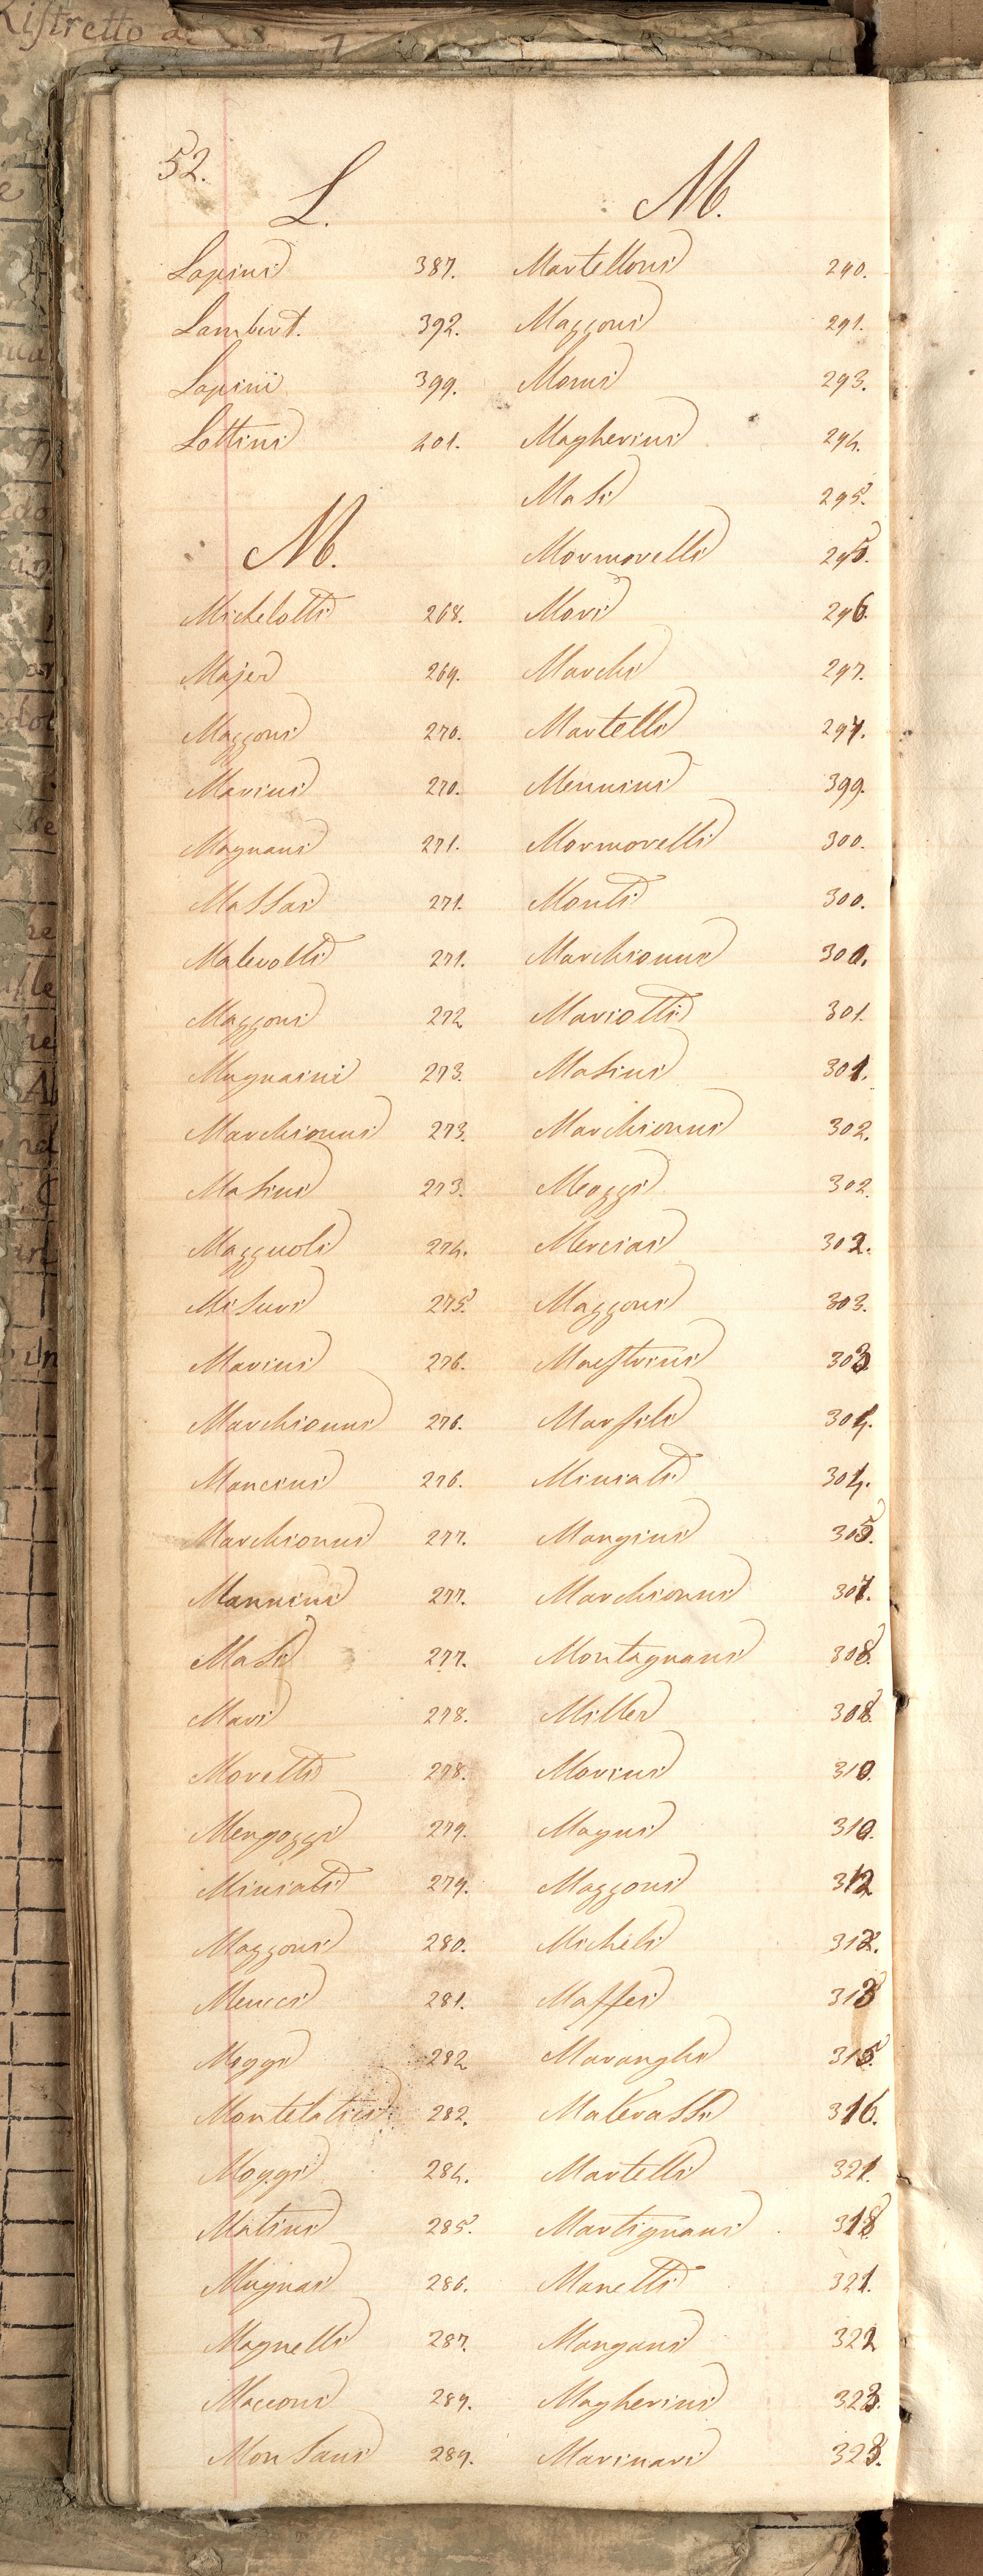 Ristretto de
52.
L.
Lapini 387.
Lambert. 392.
Lapini 399.
Lottini 401.
M.
Michelotti 268.
Majer 269.
Mazzoni 270.
Marini 270.
Magnani 271.
Massai 271.
Malevolti 271.
Mazzoni 272
Mugnaini 273.
Marchionni 273.
Masini 273.
Mazzuoli 274.
Misuri 275.
Marini 276.
Marchionni 276.
Mancini 276.
Marchionni 277.
Mannini 277.
Masi 277.
Mari 278.
Moretti 278.
Mengozzi 279.
Miniati 279.
Mazzoni 280.
Menici 281.
Moggi 282
Montelatici 282.
Moggi 284.
Matini 285.
Mugnai 286.
Magnelli 287.
Macconi 289.
Monsani 289.
M.
Martelloni 290.
Mazzoni 291.
Morini 293.
Magherini 294.
Masi 295.
Mormorelli 295.
Mori 296.
Marchi 297.
Martelli 297.
Mennini 399.
Mormorelli 300.
Monti 300.
Marchionni 300.
Mariotti 301.
Masini 301.
Marchionni 302.
Meozzi 302.
Merciai 302.
Mazzoni 303.
Maestrini 303
Marsili 304.
Miniati 304.
Mangini 305.
Marchionni 307.
Montagnani 308.
Miller 308.
Morini 310.
Magni 310.
Mazzoni 312
Micheli 312.
Maffei 313
Maranghi 315.
Malevassi 316.
Martelli 321.
Martignani 318
Manetti 321.
Mangani 322
Magherini 323.
Marinari 323.